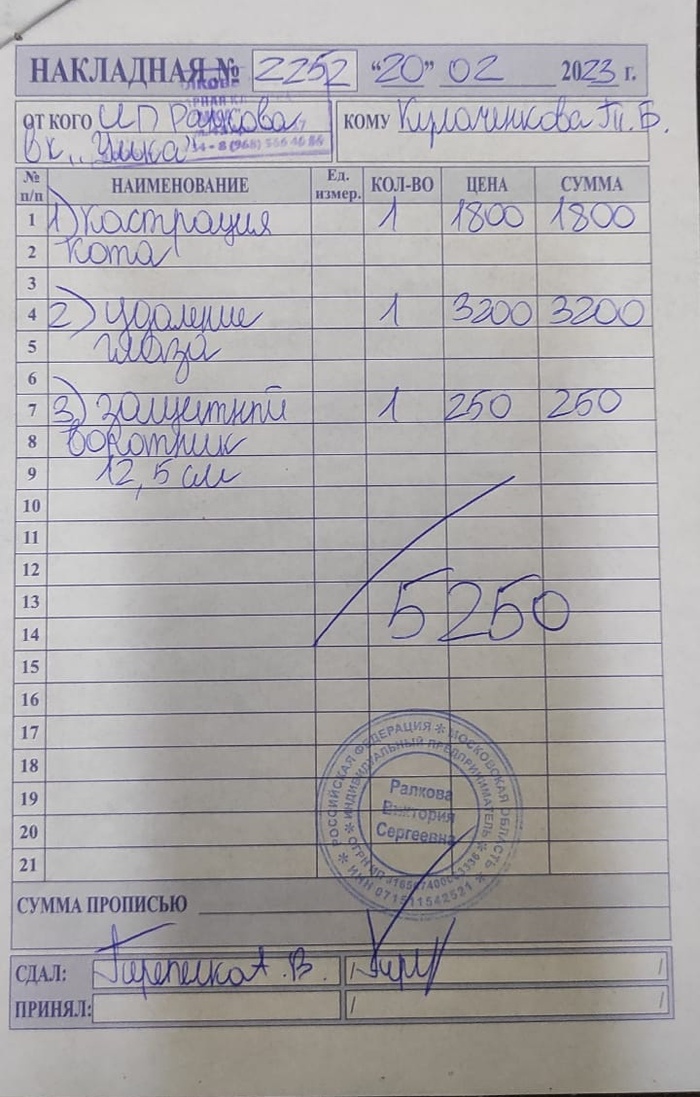 НАКЛАДНАЯ № 2252 "20" 02 2023 г.
ОТ КОГО ИП Ралкова
КОМУ Кураченкова Т. Б.
вк,,
- 8 (968)
№ п/п НАИМЕНОВАНИЕ Ед. измер. КОЛ-ВО ЦЕНА СУММА
1 1) Кастрация 1 1800 1800
2 кота
3
4 2) удаление 1 3200 3200
5 глаза
6
7 3) защитный 1 250 250
8 воротник
9 12,5 см
10
11
12
13 5250
14
15
16
17
18
19
20
21
РОССИЙСКАЯ ФЕДЕРАЦИЯ * МОСКОВСКАЯ ОБЛАСТЬ *
ИНДИВИДУАЛЬНЫЙ ПРЕДПРИНИМАТЕЛЬ *
Ралкова
Виктория
Сергеевна
ОГРНИП
ИНН 071511542521
СУММА ПРОПИСЬЮ
СДАЛ: А. В.
ПРИНЯЛ: